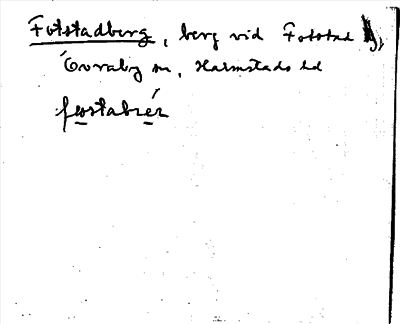 Fotstadberg, berg vid Fotstad
Övraby sn, Halmstads hd
fωstabrér